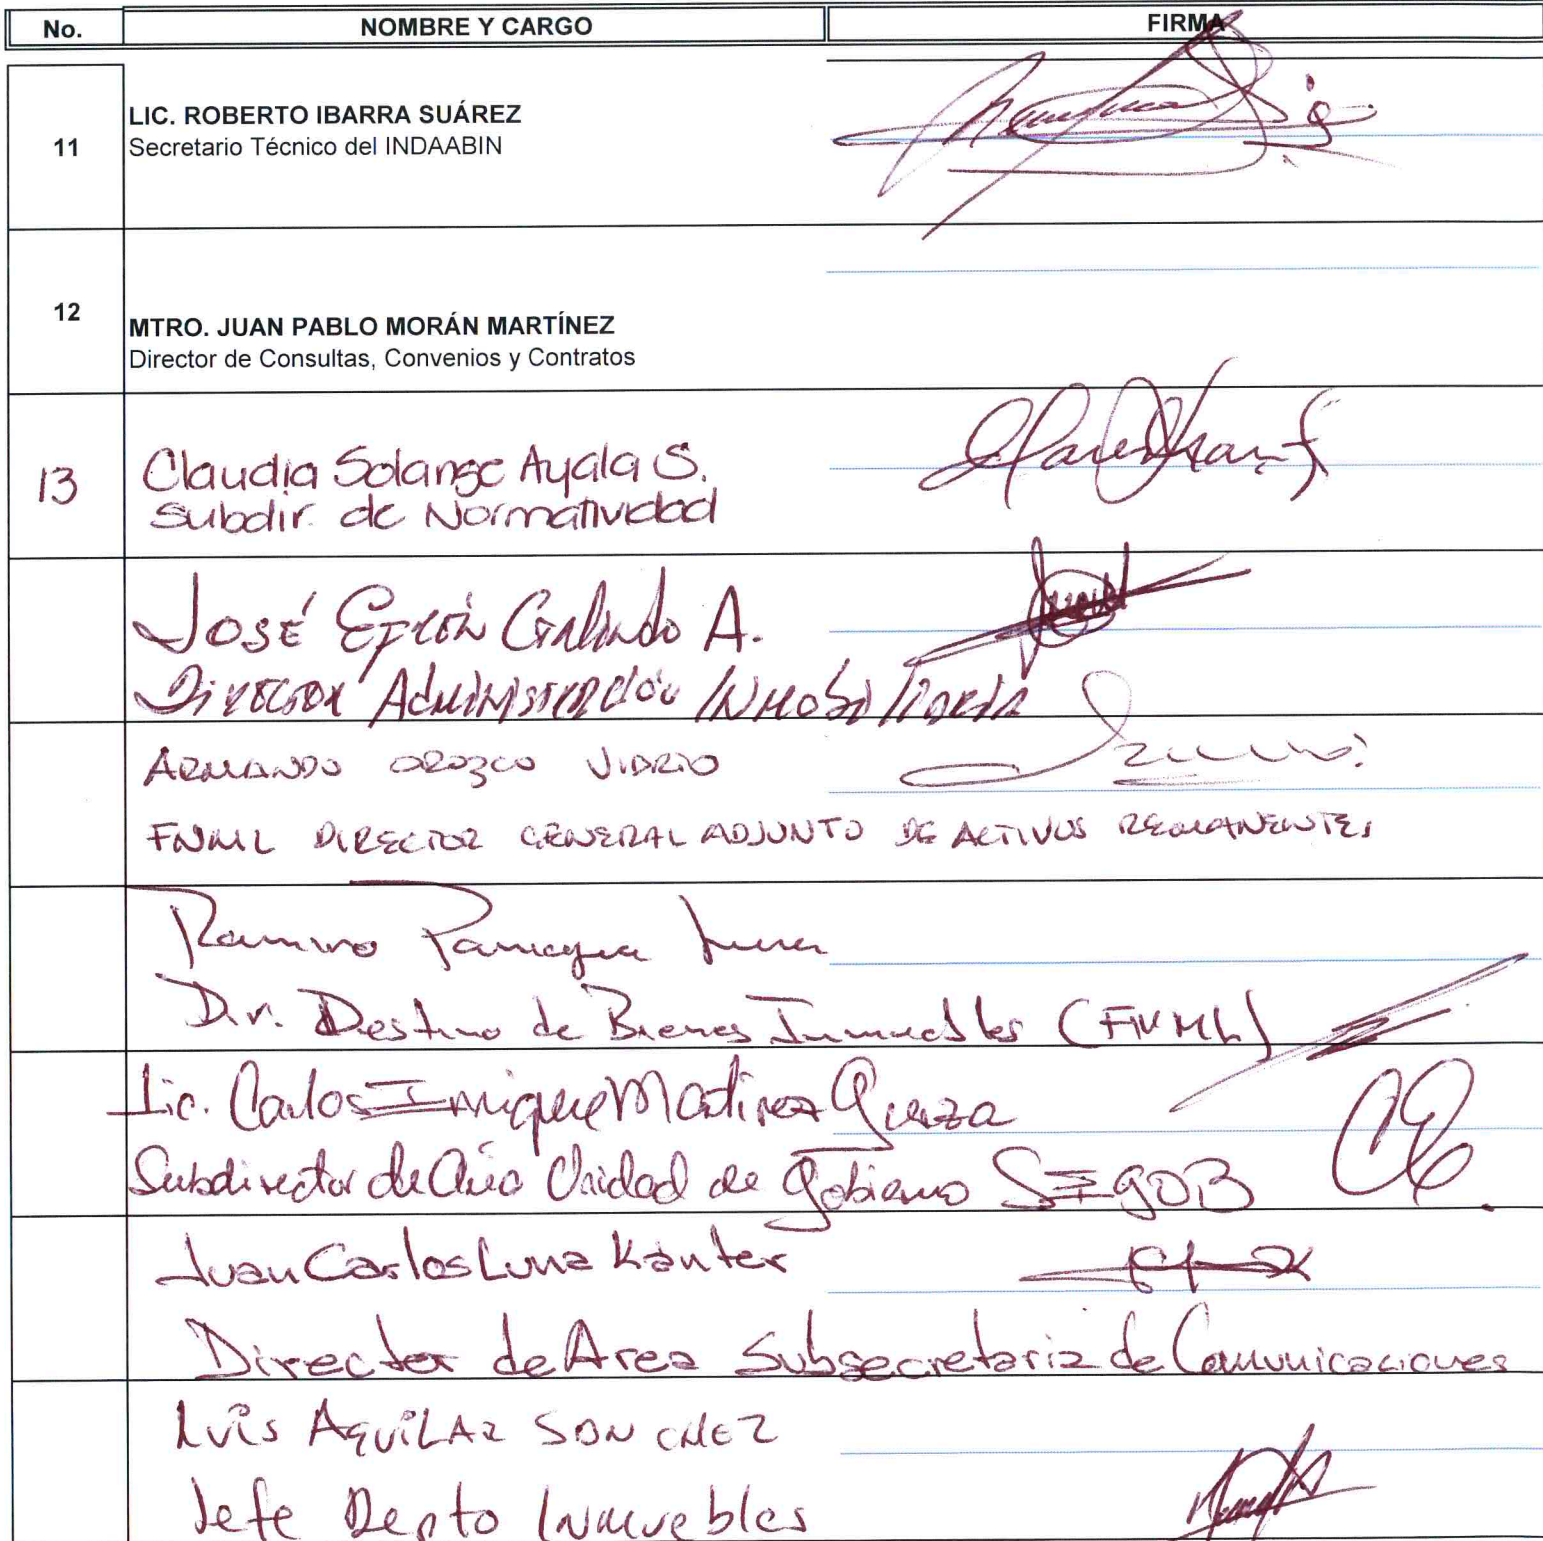 No. NOMBRE Y CARGO FIRMA
11 LIC. ROBERTO IBARRA SUÁREZ
Secretario Técnico del INDAABIN
12 MTRO. JUAN PABLO MORÁN MARTÍNEZ
Director de Consultas, Convenios y Contratos
13 Claudia Solange Ayala S.
Subdir. de Normatividad
José Efrén Galindo A.
Director Administración Inmobiliaria
ARMANDO OROZCO VIDRIO
FNML DIRECTOR GENERAL ADJUNTO DE ACTIVOS REMANENTES
Ramiro
Dir. Destino de Bienes Inmuebles (FNML)
Lic. Carlos Enrique Martinez
Subdirector de Área Unidad de Gobierno SEGOB
Juan Carlos Luna Kanter
Director de Area Subsecretaria de Comunicaciones
Luis AguiLAR SANCHEZ
Jefe Depto Inmuebles